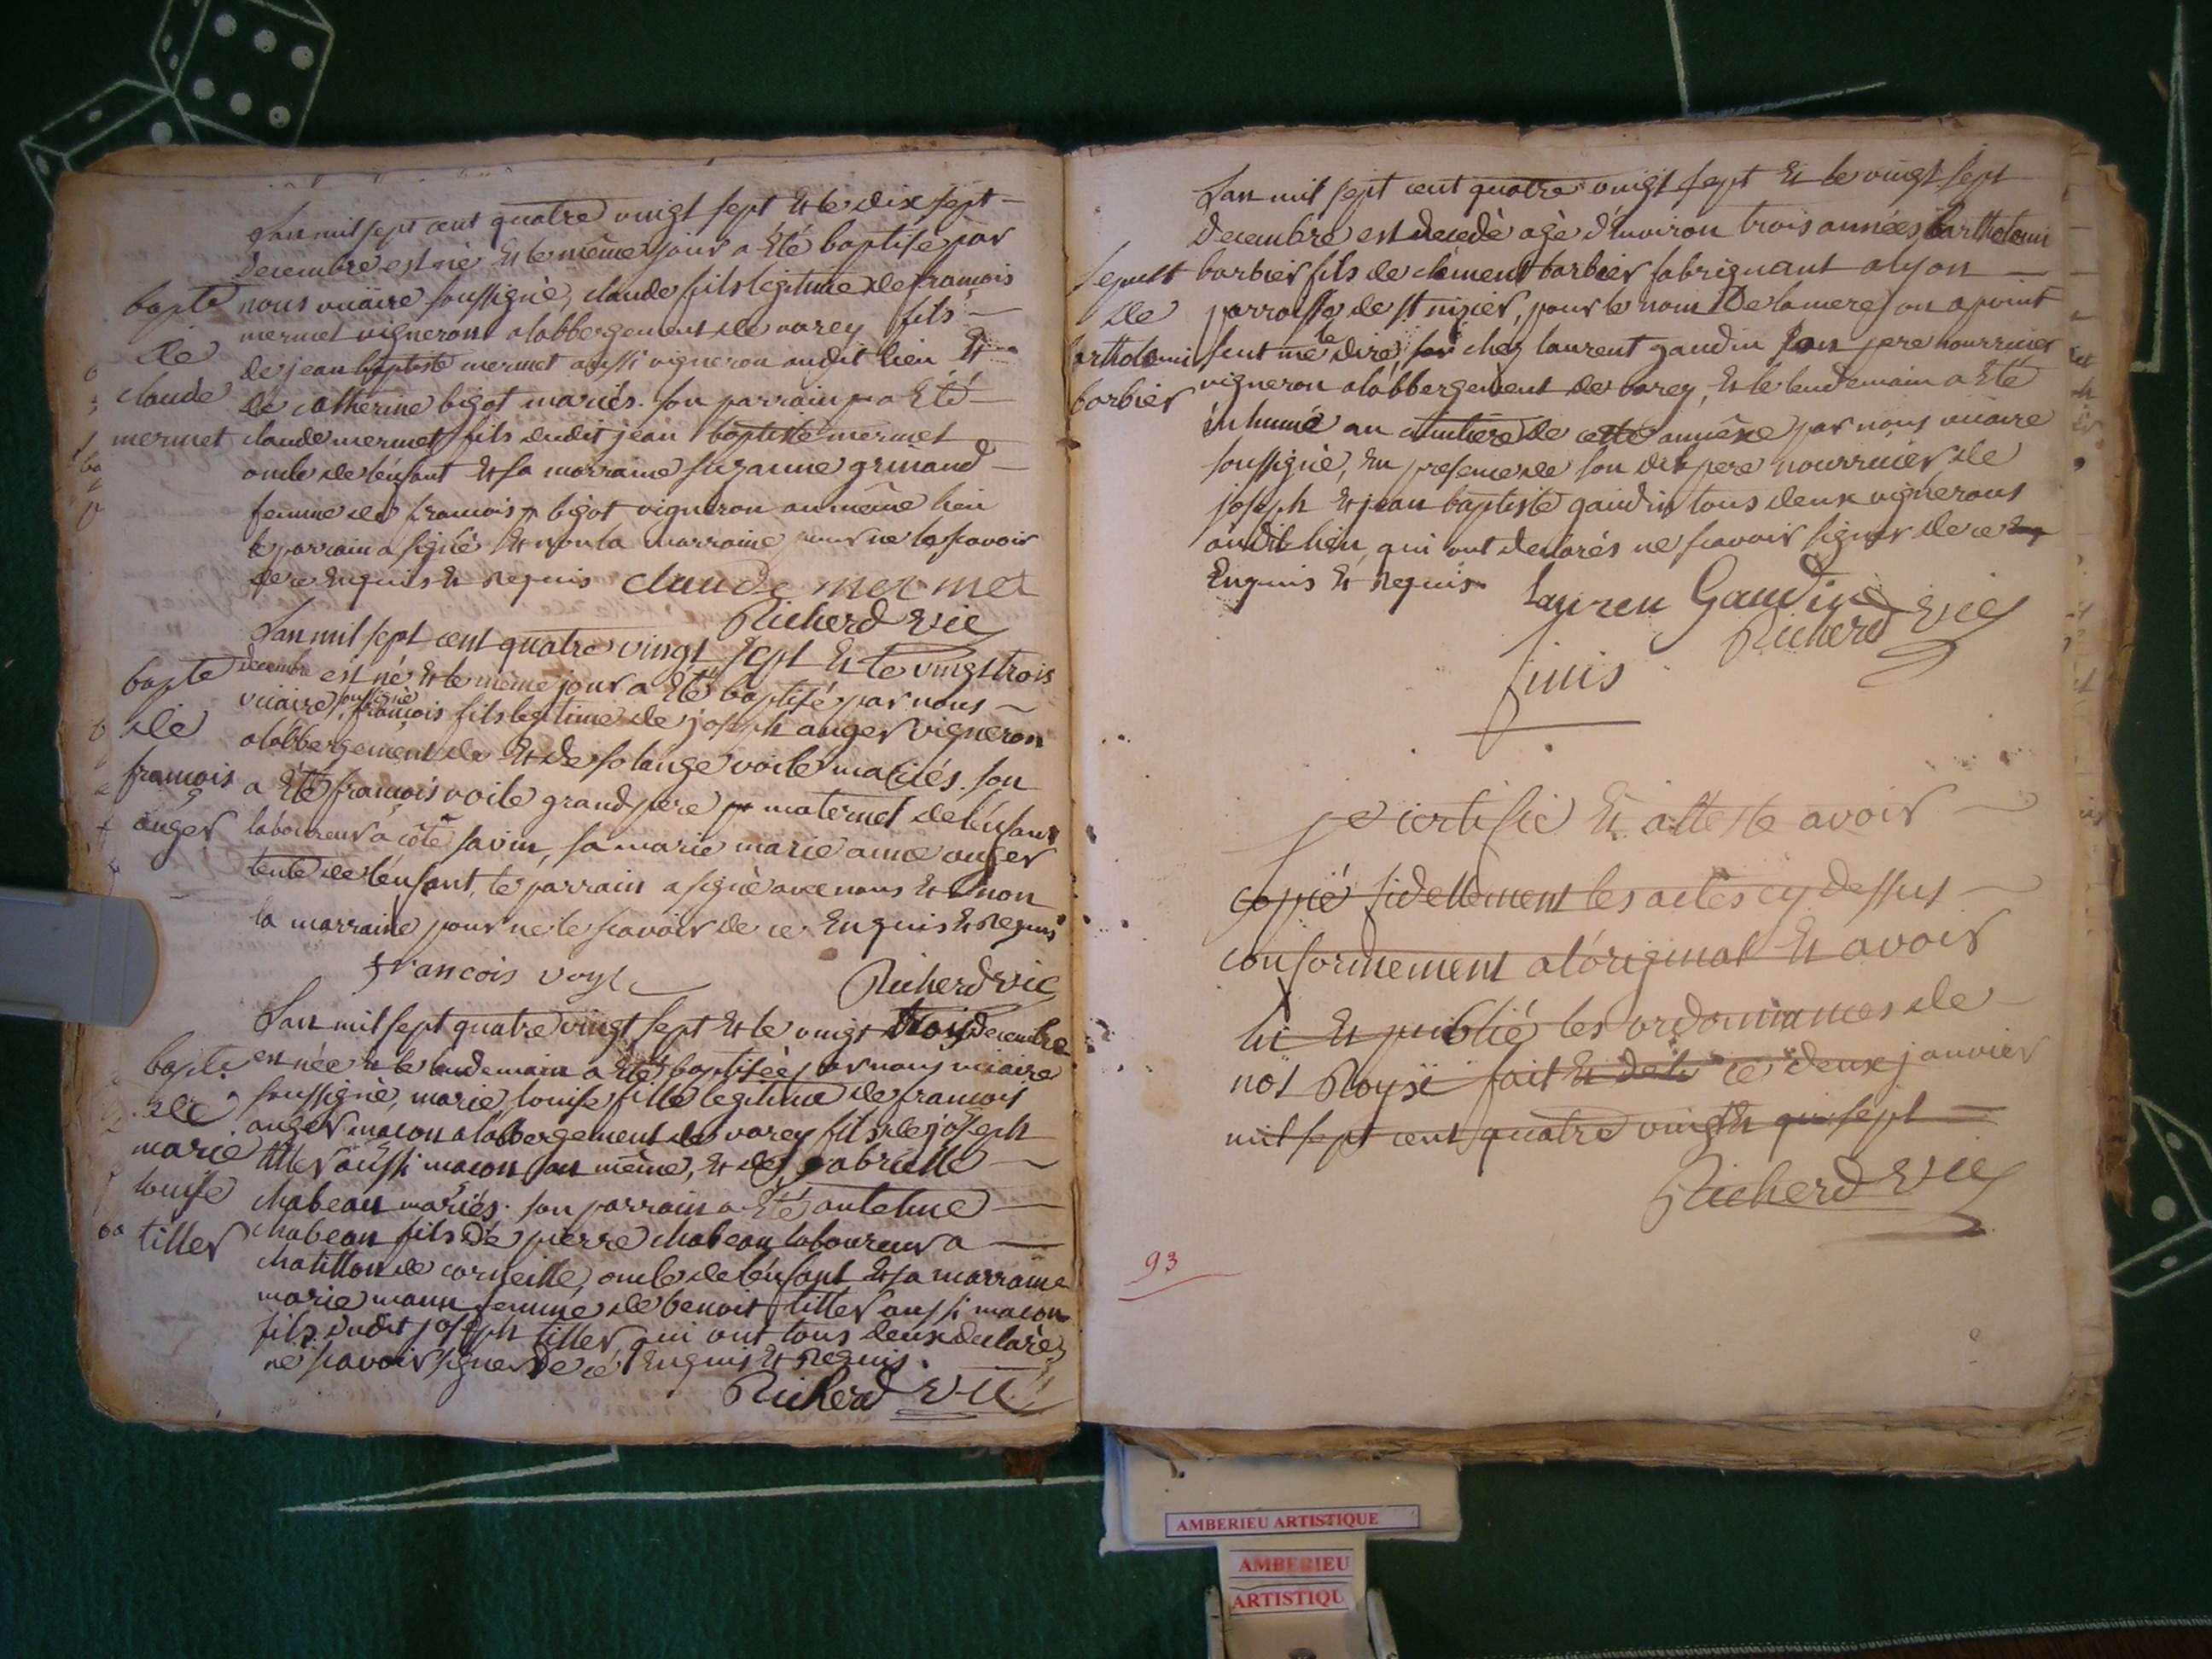 Lan mil sept cent quatre vingt sept Et le dix sept
decembre est né Et le même jour a Eté baptisé par
nous vicaire soussigné, claude fils legitime de francois
mermet vigneron alabbergement de varey fils
de jean baptiste mermet aussi vigneron audit lieu Et
de catherine bigot mariés. son parrain a Eté
claude mermet fils dudit jean baptiste mermet
oncle de lénfant Et sa marraine suzanne grinand
femme de francois bigot vigneron au même lieu
le parrain a signé Et non la marraine pour ne le scavoir
de ce Enquis Et Requis claude mermet
Richerd vic
bapte
de
claude
mermet
Lan mil sept cent quatre vingt sept Et le vingt trois
decembre est né Et le même jour a Eté baptisé par nous
vicaire soussigné, francois fils legitime de joseph auger vigneron
alabbergement de Et de solange voile mariés. son
a Eté francois voile grand pere maternel de lénfant
laboureur a côte savin, sa marie marie anne auger
tente de lénfant, le parrain a signé avec nous Et non
la marraine pour ne le scavoir de ce Enquis Et Requis
francois voyle
Richerd vic
bapte
de
francois
auger
Lan mil sept quatre vingt sept Et le vingt trois decembre
est née Et le lendemain a Eté baptisée par nous vicaire
soussigné, marie louise fille legitime de francois
auger macon alabbergement de varey fils de joseph
tiller aussi macon au même, Et de gabrielle
chabeau mariés. son parrain a Eté antelme
chabeau fils de pierre chabeau laboureur a
chatillon de corneille, oncle de lénfant Et sa marraine
marie maun femme de benoit tiller aussi macon
fils dudit joseph tiller, qui ont tous deux declarés
ne scavoir signer de ce Enquis Et Requis.
Richerd vic
bapte
de
marie
louise
tiller
Lan mil sept cent quatre vingt sept Et le vingt sept
decembre est decedé agé d'Environ trois années bartholomi
barbier fils de clement barbier fabriquant a lyon
parroisse de st nizier, pour le nom De la mere on a point
seut me le dire chez laurent gaudin son pere nourricier
vigneron alabbergement de varey, Et le lendemain a Eté
inhumé au cimitiere de cette annéxe par nous vicaire
soussigné, En presence de son dit pere nourricier de
joseph Et jean baptiste gaudin tous deux vignerons
audit lieu, qui ont declarés ne scavoir signer de ce
Enquis Et Requis.
Lauren Gaudin
Richerd vic
sepult
de
bartholomi
barbier
finis
je certifie Et atteste avoir
copié fidellement les actes cy dessus
conformement a lóriginal Et avoir
lu Et publié les ordonnances de
nos Roys fait Et ce deux janvier
mil sept cent quatre vingts sept
Richerd vic
93
AMBERIEU ARTISTIQUE
AMBERIEU
ARTISTIQU